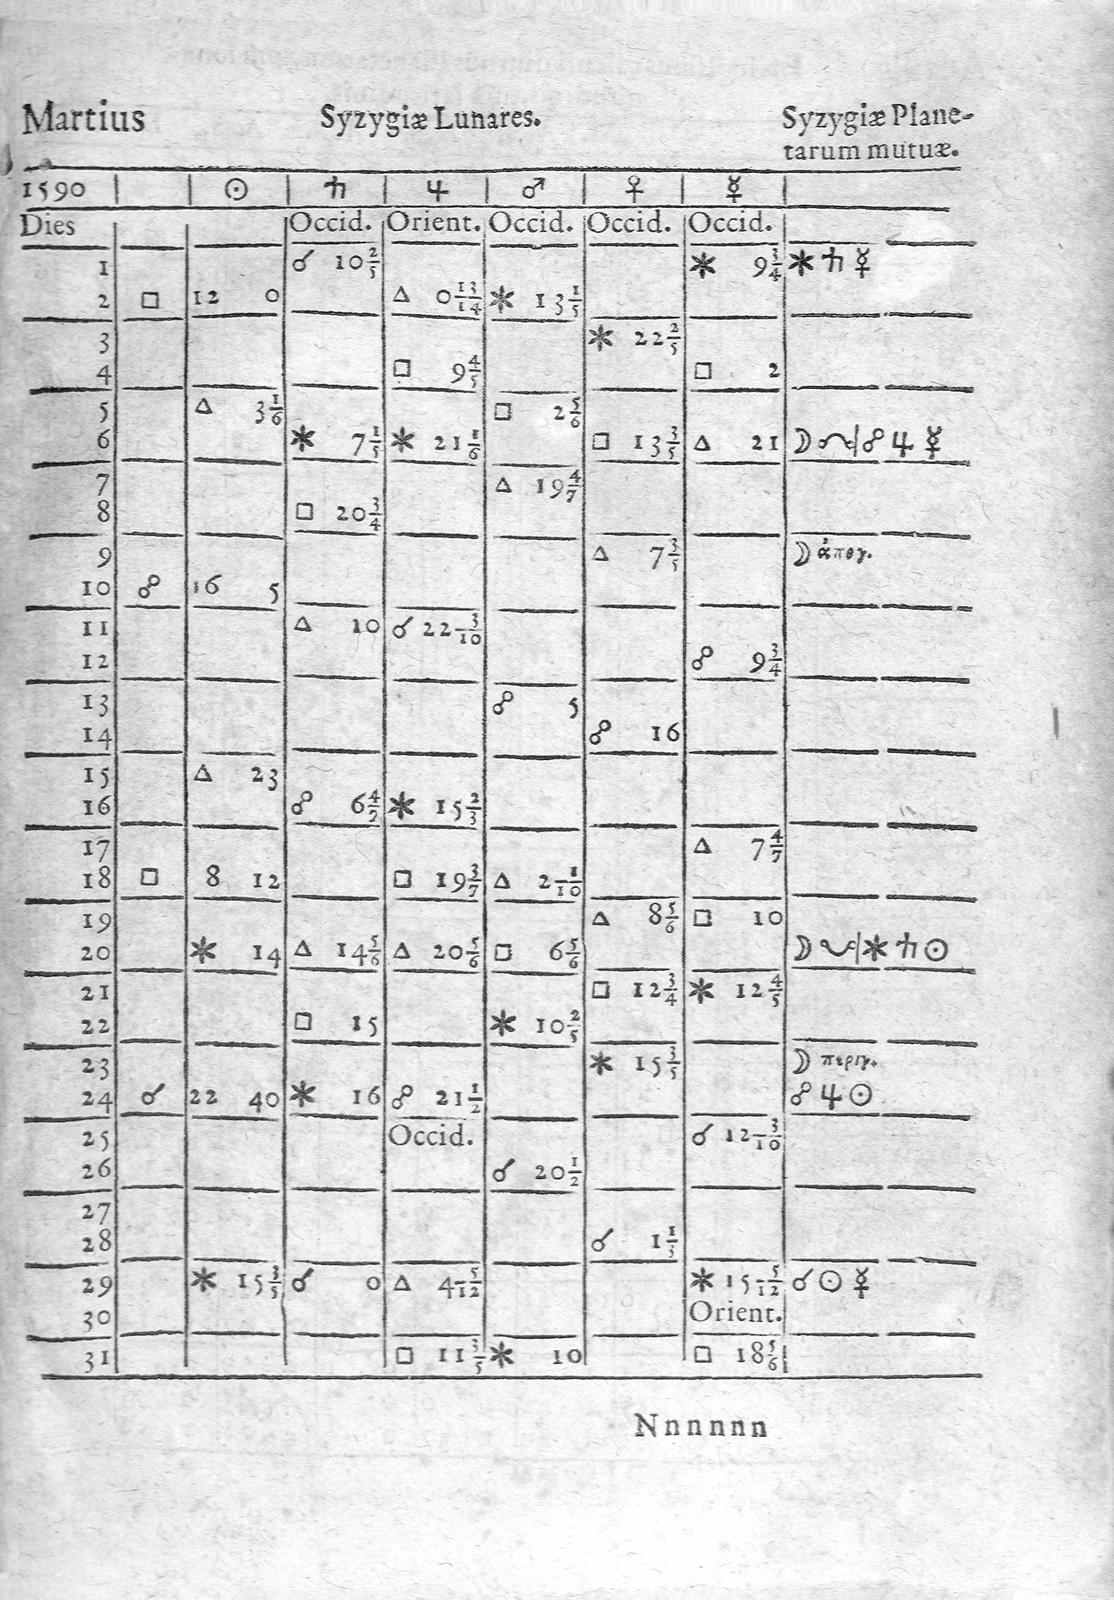 Martius Syzygiæ Lunares. Syzygiæ Plane-
tarum mutuæ.
1590 ☉ ♄ ♃ ♂ ♀ ☿
Dies Occid. Orient. Occid. Occid. Occid.
1 ☌ 10 2/5 ✶ 9 3/4 ✶ ♄ ☿
2 □ 12 0 △ 0 13/14 ✶ 13 1/5
3 ✶ 22 2/5
4 □ 9 4/5 □ 2
5 △ 3 1/6 □ 2 5/6
6 ✶ 7 1/5 ✶ 21 1/6 □ 13 3/5 △ 21 ☽ ☊ | ☍ ♃ ☿
7 △ 19 4/7
8 □ 20 3/4
9 △ 7 3/5 ☽ ἀπογ.
10 ☍ 16 5
11 △ 10 ☌ 22 3/10
12 ☍ 9 3/4
13 ☍ 5
14 ☍ 16
15 △ 23
16 ☍ 6 4/7 ✶ 15 2/3
17 △ 7 4/7
18 □ 8 12 □ 19 3/7 △ 2 1/10
19 △ 8 5/6 □ 10
20 ✶ 14 △ 14 5/6 △ 20 5/6 □ 6 5/6 ☽ ☋ | ✶ ♄ ☉
21 □ 12 3/4 ✶ 12 4/5
22 □ 15 ✶ 10 2/5
23 ✶ 15 3/5 ☽ περιγ.
24 ☌ 22 40 ✶ 16 ☍ 21 1/2 ☍ ♃ ☉
25 Occid. ☌ 12 3/10
26 ☌ 20 1/2
27
28 ☌ 1 1/3
29 ✶ 15 3/5 ☌ 0 △ 4 5/12 ✶ 15 5/12 ☌ ☉ ☿
30 Orient.
31 □ 11 3/5 ✶ 10 □ 18 5/6
Nnnnnn